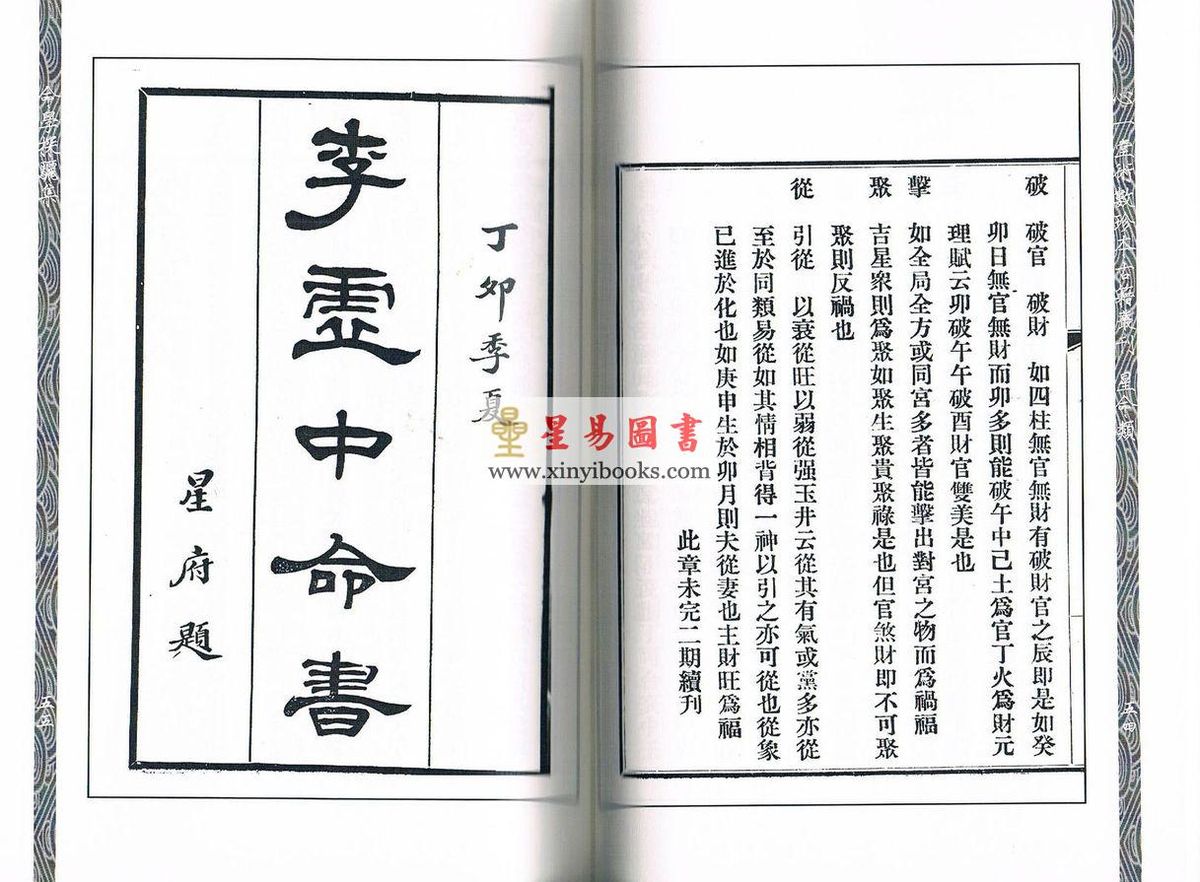 破　破官　破財　如四柱無官無財有破財官之辰即是如癸
卯日無官無財而卯多則能破午中己土為官丁火為財元
理賦云卯破午午破酉財官雙美是也
擊　如全局全方或同宮多者皆能擊出對宮之物而為禍福
聚　吉星衆則為聚如聚生聚貴聚祿是也但官煞財即不可聚
聚則反禍也
從　引從　以衰從旺以弱從强玉井云從其有氣或黨多亦從
至於同類易從如其情相背得一神以引之亦可從也從象
已進於化也如庚申生於卯月則夫從妻也主財旺為福
此章未完二期續刊
五四
丁卯季夏
李虛中命書
星府題
命學探驪集
五五
星易圖書
www.xinyibooks.com